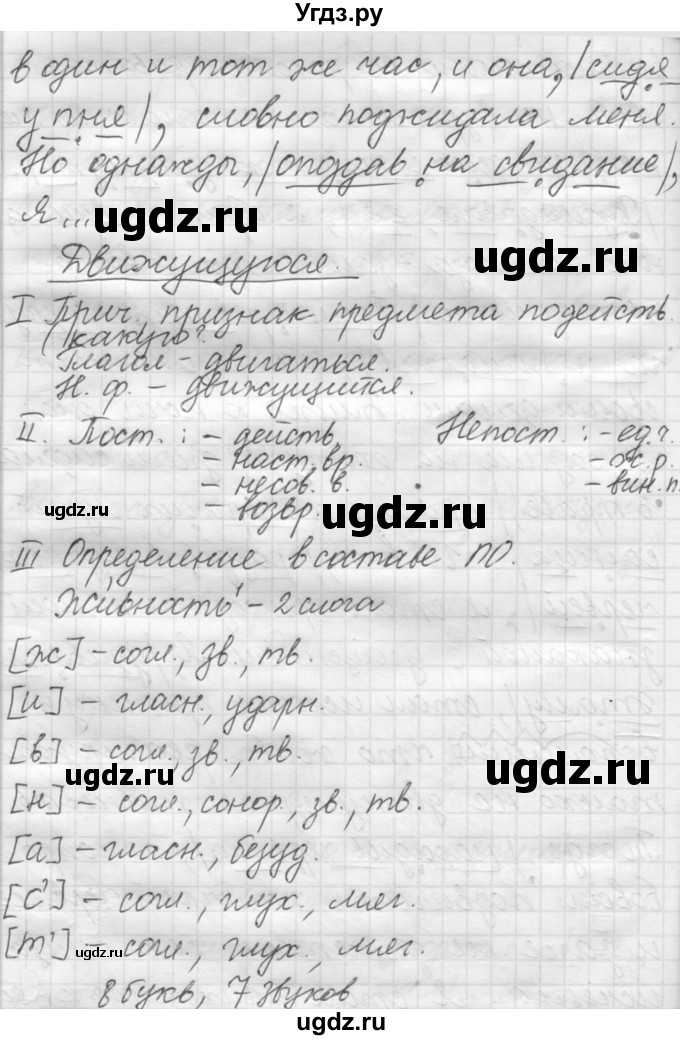 Угдз.ру
в один и тот же час, и она, |сидя
у пня|, словно поджидала меня.
Но однажды, |опоздав на свидание|,
я...
ugdz.ru
ugdz.ru
Движущуюся.
I Прич., признак предмета по действ.
(какую?
Глагол - двигаться.
Н. ф. - движущийся.
II. Пост.: - действ. Непост.: - ед. ч.
- наст. вр. - ж. р.
- несов. в. - вин. п.
- возвр.
ugdz.ru
ugdz.ru
III Определение в составе ПО.
Живность - 2 слога
[ж] - согл., зв., тв.
[и] - гласн., ударн.
[в] - согл., зв., тв.
ugdz.ru
ugdz.ru
[н] - согл., сонор., зв., тв.
[а] - гласн., безуд.
[с'] - согл., глух., мяг.
[т'] - согл., глух., мяг.
ugdz.ru
8 букв, 7 звуков
ugdz.ru